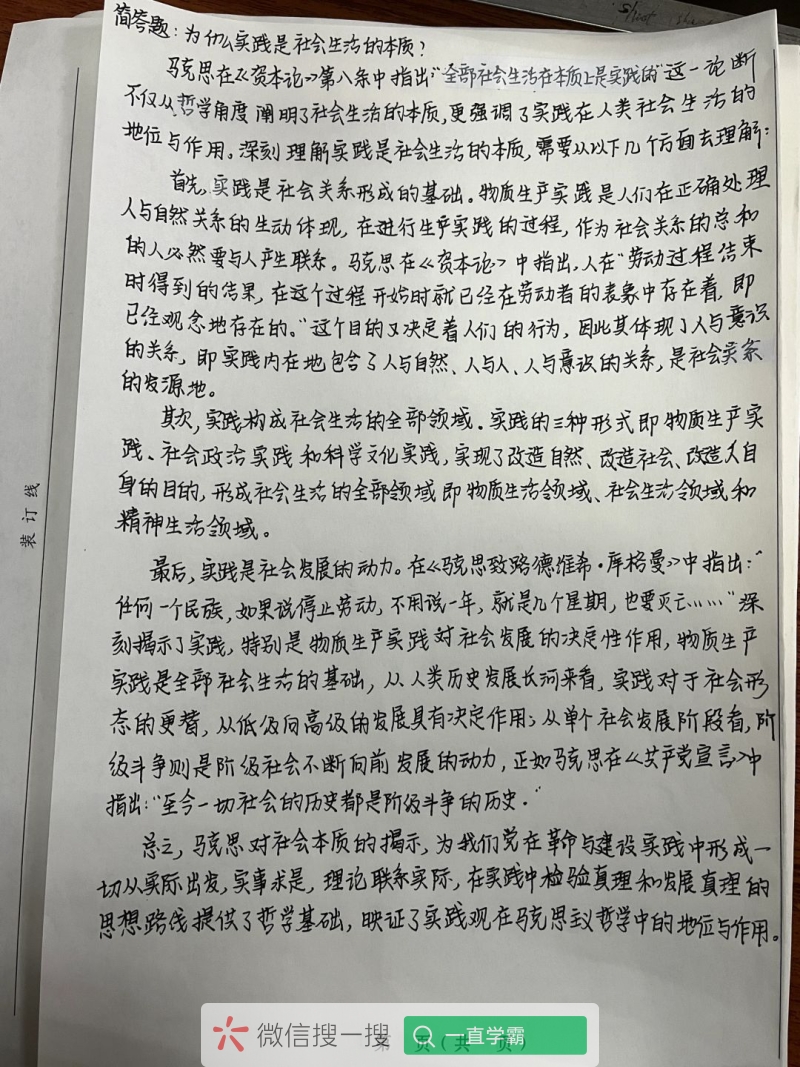 简答题：为什么实践是社会生活的本质？
马克思在《资本论》第八条中指出"全部社会生活在本质上是实践的"这一论断
不仅从哲学角度阐明了社会生活的本质，更强调了实践在人类社会生活的
地位与作用。深刻理解实践是社会生活的本质，需要从以下几个方面去理解：
首先，实践是社会关系形成的基础。物质生产实践是人们在正确处理
人与自然关系的生动体现，在进行生产实践的过程，作为社会关系的总和
的人必然要与人产生联系。马克思在《资本论》中指出，人在"劳动过程结束
时得到的结果，在这个过程开始时就已经在劳动者的表象中存在着，即
已经观念地存在的。"这个目的又决定着人们的行为，因此其体现了人与意识
的关系，即实践内在地包含了人与自然、人与人、人与意识的关系，是社会关系
的发源地。
其次，实践构成社会生活的全部领域。实践的三种形式即物质生产实
践、社会政治实践和科学文化实践，实现了改造自然、改造社会、改造人自
身的目的，形成社会生活的全部领域即物质生活领域、社会生活领域和
精神生活领域。
最后，实践是社会发展的动力。在《马克思致路德维希·库格曼》中指出："
任何一个民族，如果说停止劳动，不用说一年，就是几个星期，也要灭亡……"深
刻揭示了实践，特别是物质生产实践对社会发展的决定性作用，物质生产
实践是全部社会生活的基础，从人类历史发展长河来看，实践对于社会形
态的更替，从低级向高级的发展具有决定作用；从单个社会发展阶段看，阶
级斗争则是阶级社会不断向前发展的动力，正如马克思在《共产党宣言》中
指出："至今一切社会的历史都是阶级斗争的历史。"
总之，马克思对社会本质的揭示，为我们党在革命与建设实践中形成一
切从实际出发，实事求是，理论联系实际，在实践中检验真理和发展真理的
思想路线提供了哲学基础，映证了实践观在马克思主义哲学中的地位与作用。
装订线
第 页（共 页）
微信搜一搜 一直学霸